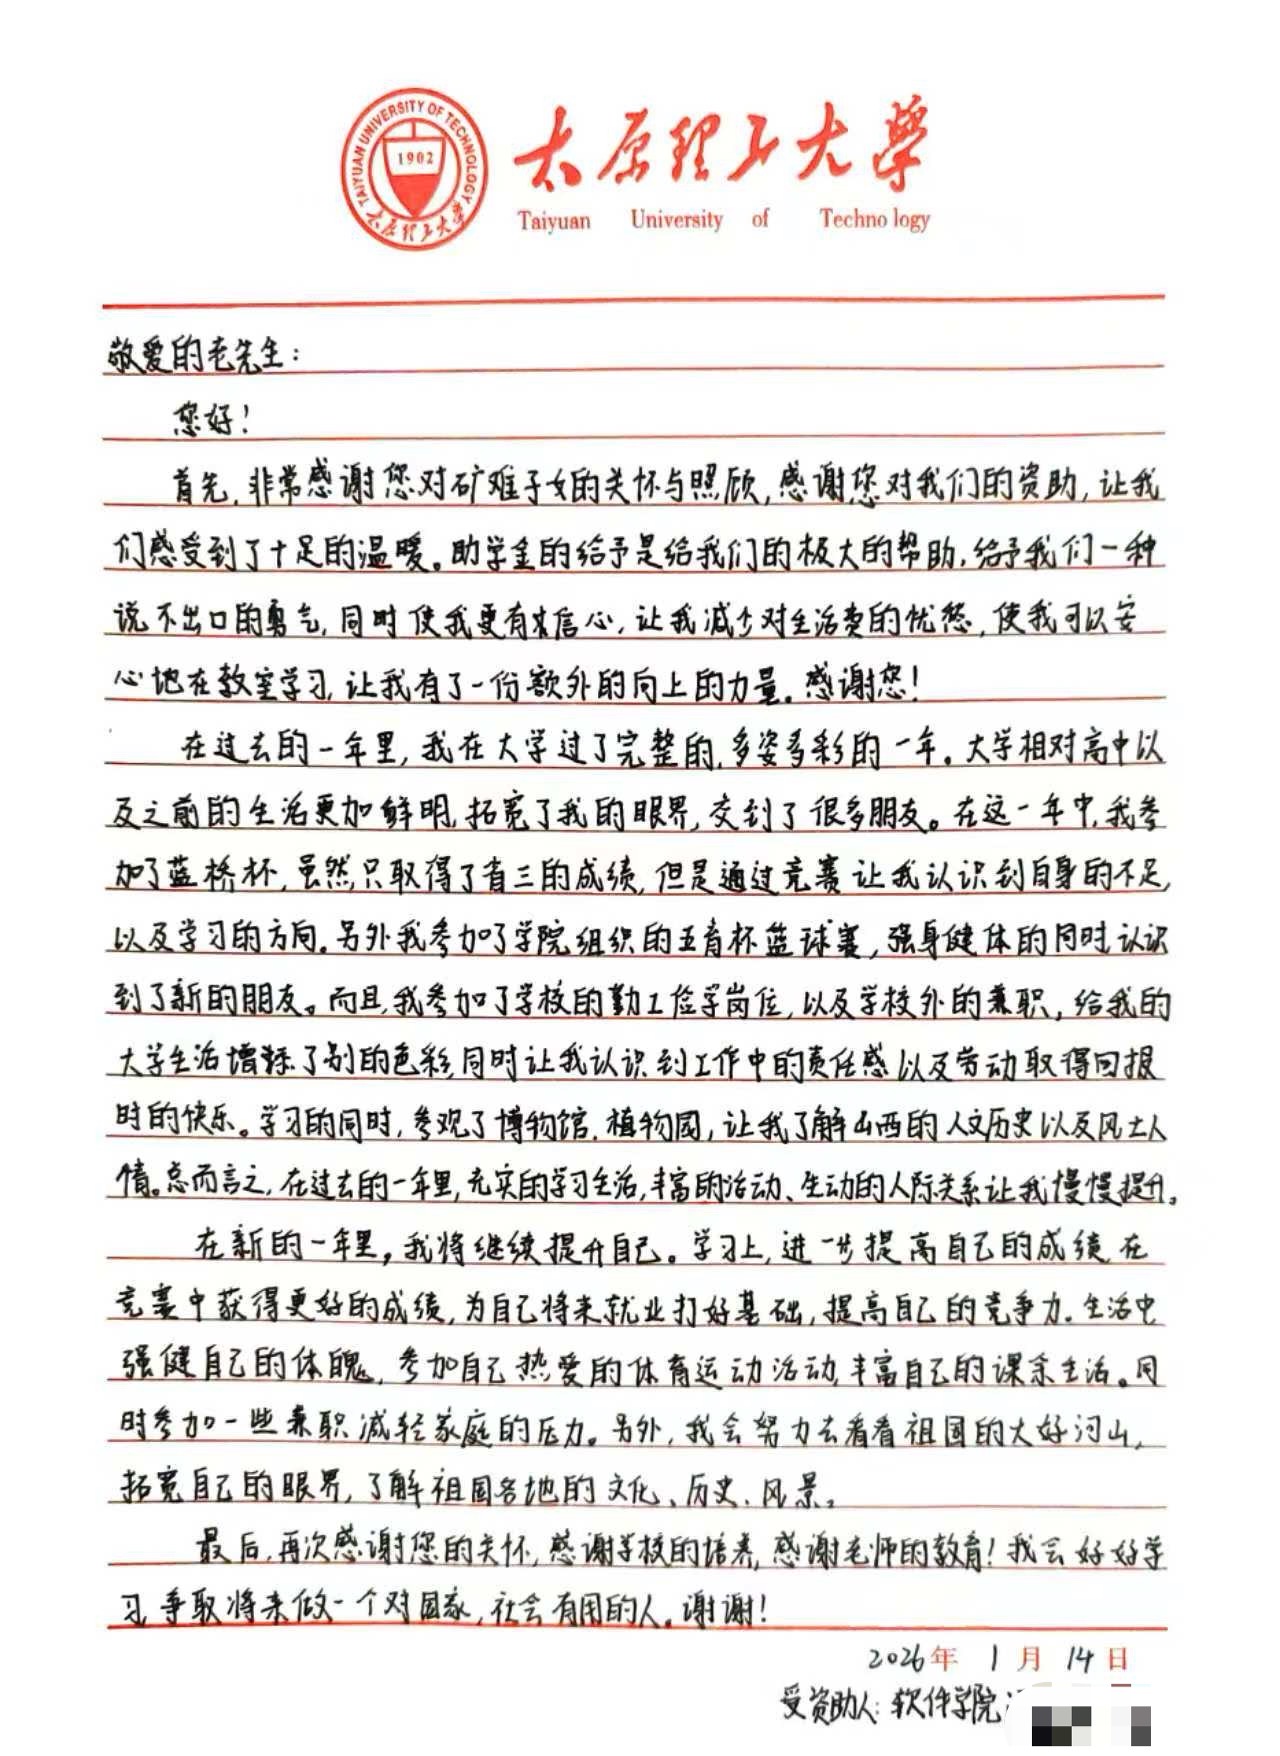 TAIYUAN UNIVERSITY OF TECHNOLOGY
1902
太原理工大学
太原理工大学
Taiyuan University of Technology
敬爱的老先生：
您好！
首先，非常感谢您对矿难子女的关怀与照顾，感谢您对我们的资助，让我
们感受到了十足的温暖。助学金的给予是给我们的极大的帮助，给予我们一种
说不出口的勇气，同时使我更有信心，让我减少对生活费的忧愁，使我可以安
心地在教室学习，让我有了一份额外的向上的力量。感谢您！
在过去的一年里，我在大学过了完整的，多姿多彩的一年。大学相对高中以
及之前的生活更加鲜明，拓宽了我的眼界，交到了很多朋友。在这一年中，我参
加了蓝桥杯，虽然只取得了省三的成绩，但是通过竞赛让我认识到自身的不足，
以及学习的方向。另外我参加了学院组织的五育杯篮球赛，强身健体的同时认识
到了新的朋友。而且，我参加了学校的勤工俭学岗位，以及学校外的兼职，给我的
大学生活增添了别的色彩，同时让我认识到工作中的责任感以及劳动取得回报
时的快乐。学习的同时，参观了博物馆、植物园，让我了解山西的人文历史以及风土人
情。总而言之，在过去的一年里，充实的学习生活，丰富的活动、生动的人际关系让我慢慢提升。
在新的一年里，我将继续提升自己。学习上，进一步提高自己的成绩，在
竞赛中获得更好的成绩，为自己将来就业打好基础，提高自己的竞争力。生活中
强健自己的体魄，参加自己热爱的体育运动活动，丰富自己的课余生活。同
时参加一些兼职减轻家庭的压力。另外，我会努力去看看祖国的大好河山，
拓宽自己的眼界，了解祖国各地的文化、历史、风景。
最后，再次感谢您的关怀，感谢学校的培养，感谢老师的教育！我会好好学
习，争取将来做一个对国家，社会有用的人。谢谢！
2026年 1月 14日
受资助人：软件学院